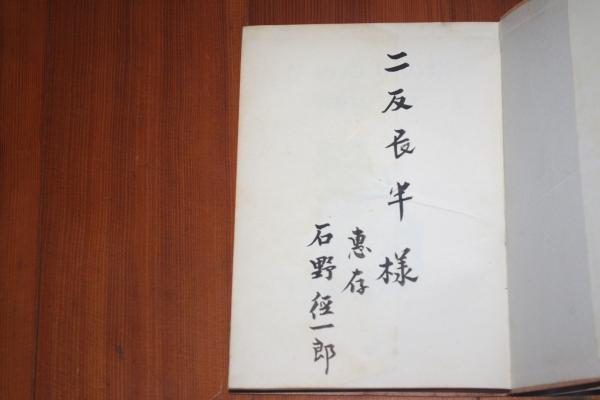 二反長半様
惠存
石野径一郎